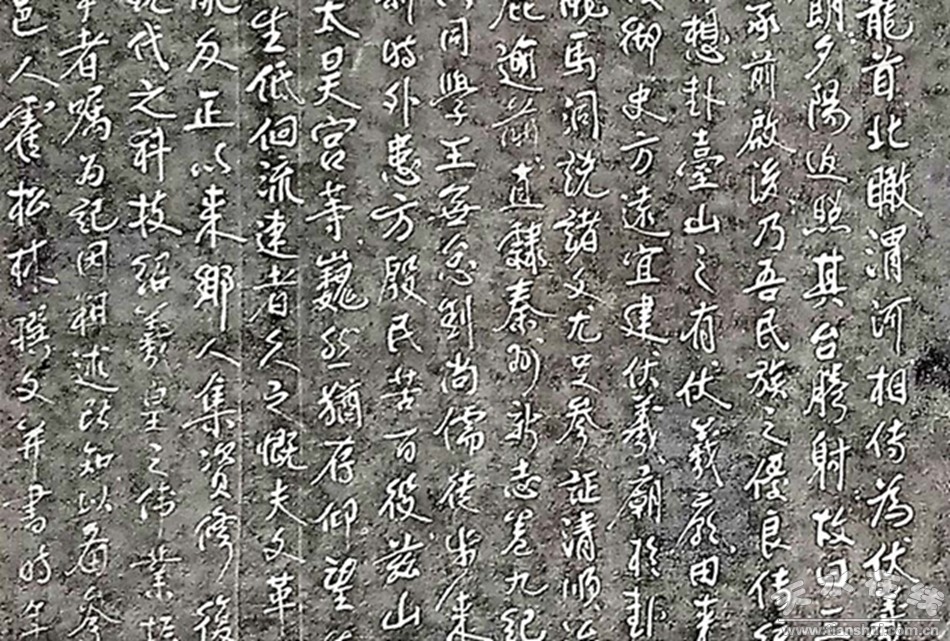 龍首北瞰渭河相傳為伏羲
朗夕陽返照其台騰射故曰三
承前啟後乃吾民族之優良傳
想卦臺山之有伏羲廟由來
御史方遠宜建伏羲廟於卦
馬洞說諸文尤足參証清順治
逾前直隸秦州新志卷九記
同學王無怠劉尚儒徒步來
時外患方殷民苦百役茲山
太昊宮等巍然猶存仰望
生低徊流連者久之慨夫文革
亂反正以來鄉人集資修復
代之科技紹羲皇之偉業
者囑為記因粗述所知以備參
邑人霍松林撰文并書時年
www.tianshui.com.cn